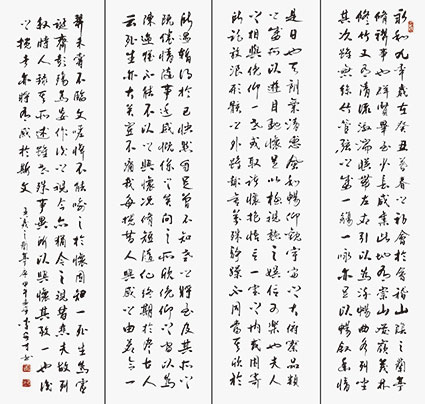 永和九年歲在癸丑暮春之初會於會稽山陰之蘭亭
脩禊事也群賢畢至少長咸集此地有崇山峻嶺茂林
脩竹又有清流激湍映帶左右引以為流觴曲水列坐
其次雖無絲竹管弦之盛一觴一詠亦足以暢敘幽情
是日也天朗氣清惠風和暢仰觀宇宙之大俯察品類
之盛所以遊目騁懷足以極視聽之娛信可樂也夫人
之相與俯仰一世或取諸懷抱悟言一室之內或因寄
所託放浪形骸之外雖趣舍萬殊靜躁不同當其欣於
所遇暫得於己快然自足曾不知老之將至及其所之
既倦情隨事遷感慨係之矣向之所欣俛仰之間以為
陳迹猶不能不以之興懷況脩短隨化終期於盡古人
云死生亦大矣豈不痛哉每攬昔人興感之由若合一
契未嘗不臨文嗟悼不能喻之於懷固知一死生為虛
誕齊彭殤為妄作後之視今亦猶今之視昔悲夫故列
敘時人錄其所述雖世殊事異所以興懷其致一也後
之攬者亦將有感於斯文 王羲之蘭亭序